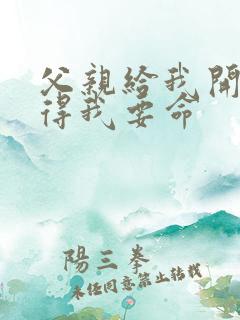 父親給我開
得我要命
陽三拳
未经同意禁止转载